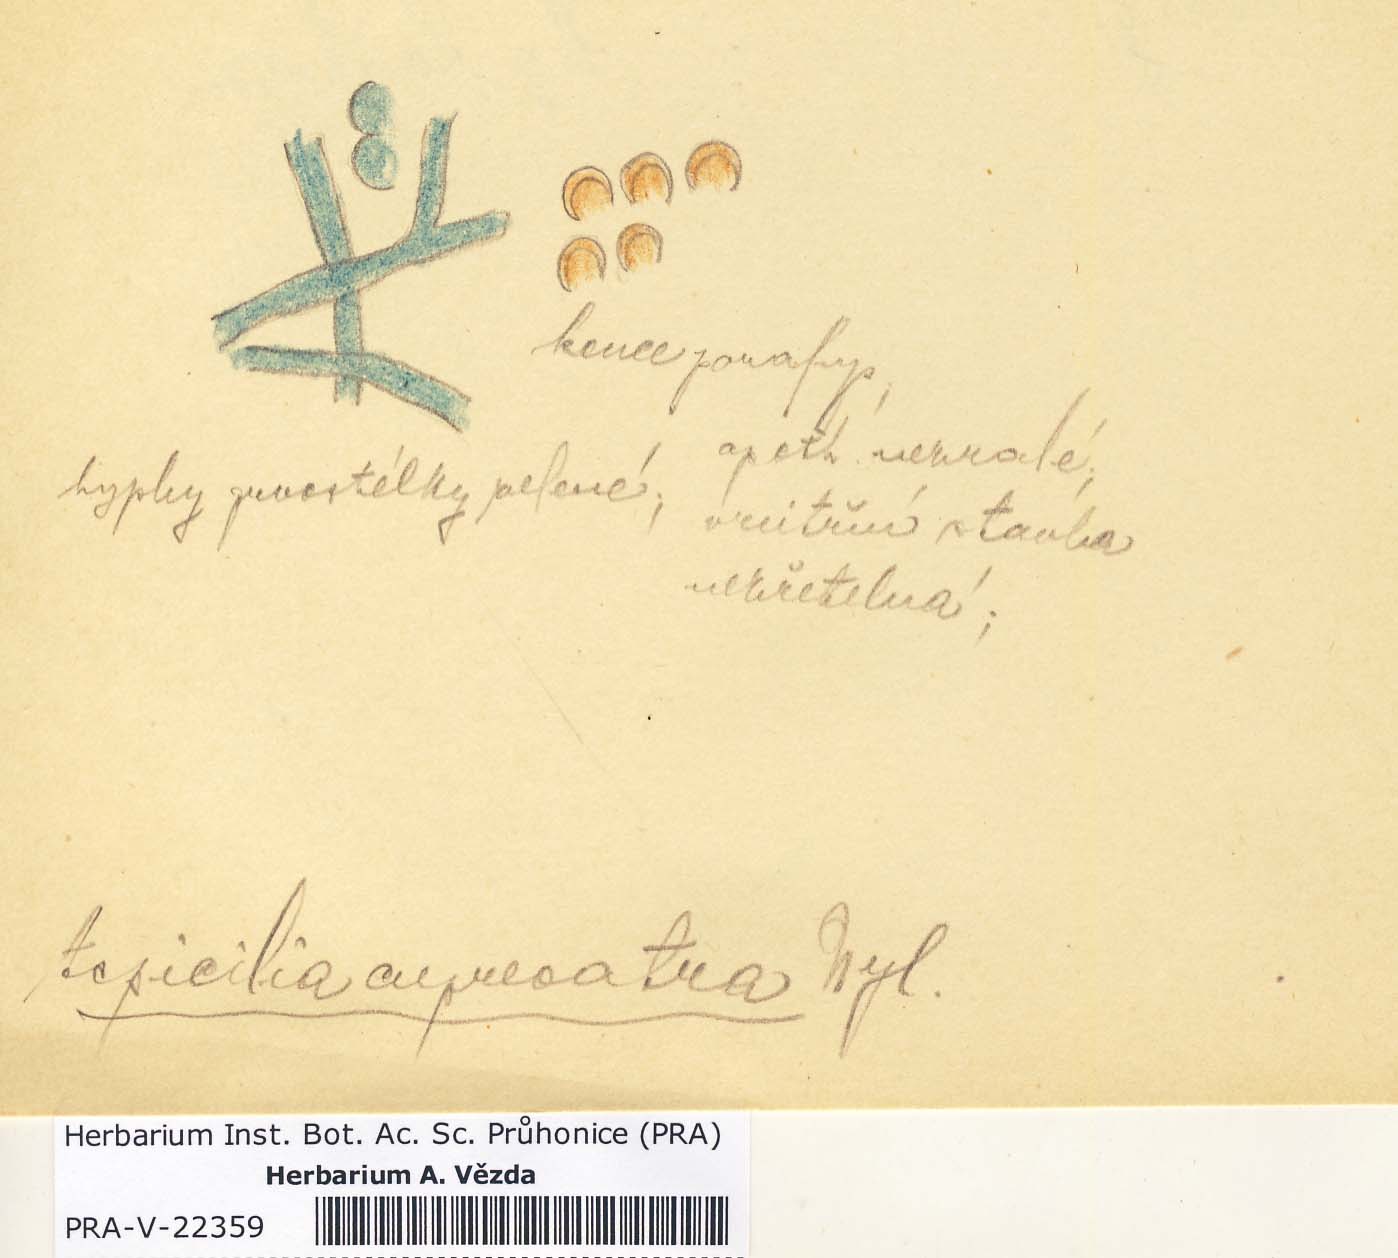 konce parafys,
hyphy prvostélky zelené;
apoth. nezralé;
vnitřní stavba
nezřetelná;
Aspicilia cupreoatra Nyl.
Herbarium Inst. Bot. Ac. Sc. Průhonice (PRA)
Herbarium A. Vězda
PRA-V-22359